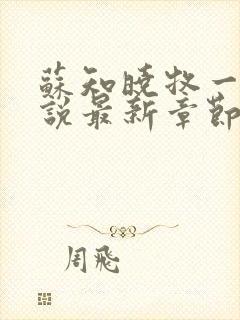 蘇知曉牧一
說最新章節
周飛